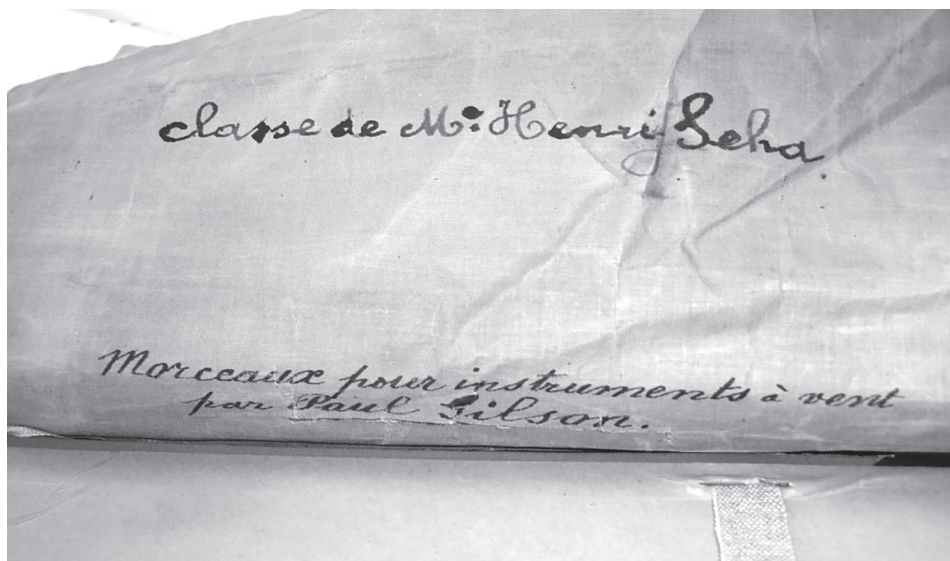 classe de Mr. Henri Seha.
Morceaux pour instruments à vent
par Paul Gilson.